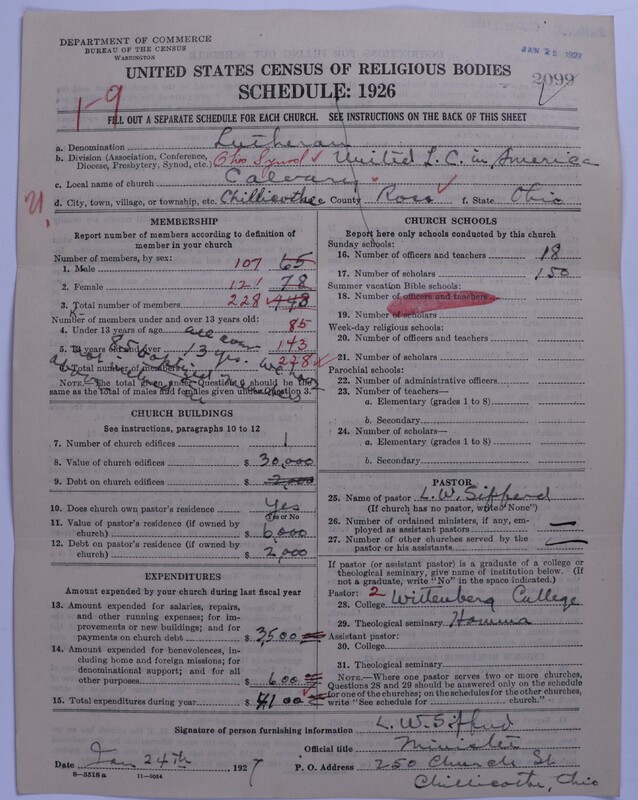 DEPARTMENT OF COMMERCE
BUREAU OF THE CENSUS
WASHINGTON
JAN 25 1927
2099
UNITED STATES CENSUS OF RELIGIOUS BODIES
SCHEDULE: 1926
1-9
FILL OUT A SEPARATE SCHEDULE FOR EACH CHURCH. SEE INSTRUCTIONS ON THE BACK OF THIS SHEET
a. Denomination Lutheran
b. Division (Association, Conference, Diocese, Presbytery, Synod, etc.) Ohio Synod United L.C. in America
c. Local name of church Calvary
d. City, town, village, or township, etc. Chillicothe e. County Ross f. State Ohio
MEMBERSHIP
Report number of members according to definition of member in your church
Number of members, by sex:
1. Male 107 65
2. Female 121 78
3. Total number of members 228
Number of members under and over 13 years old:
4. Under 13 years of age 85
5. 13 years old and over 143
6. Total number of members 228
all over 13 yrs. We have
85 baptized
NOTE.—The total given under Question 6 should be the same as the total of males and females given under Question 3.
CHURCH BUILDINGS
See instructions, paragraphs 10 to 12
7. Number of church edifices 1
8. Value of church edifices $ 30,000
9. Debt on church edifices $ 2,000
10. Does church own pastor's residence Yes
Yes or No
11. Value of pastor's residence (if owned by church) $ 6,000
12. Debt on pastor's residence (if owned by church) $ 2,000
EXPENDITURES
Amount expended by your church during last fiscal year
13. Amount expended for salaries, repairs, and other running expenses; for improvements or new buildings; and for payments on church debt $ 3,500
14. Amount expended for benevolences, including home and foreign missions; for denominational support; and for all other purposes $ 600
15. Total expenditures during year $ 4100
CHURCH SCHOOLS
Report here only schools conducted by this church
Sunday schools:
16. Number of officers and teachers 18
17. Number of scholars 150
Summer vacation Bible schools:
18. Number of officers and teachers
19. Number of scholars
Week-day religious schools:
20. Number of officers and teachers
21. Number of scholars
Parochial schools:
22. Number of administrative officers
23. Number of teachers—
a. Elementary (grades 1 to 8)
b. Secondary
24. Number of scholars—
a. Elementary (grades 1 to 8)
b. Secondary
PASTOR
25. Name of pastor L.W. Sifferd
(If church has no pastor, write "None")
26. Number of ordained ministers, if any, employed as assistant pastors —
27. Number of other churches served by the pastor or his assistants —
If pastor (or assistant pastor) is a graduate of a college or theological seminary, give name of institution below. (If not a graduate, write "No" in the space indicated.)
Pastor: 2
28. College Wittenberg College
29. Theological seminary Hamma
Assistant pastor:
30. College
31. Theological seminary
NOTE.—Where one pastor serves two or more churches, Questions 28 and 29 should be answered only on the schedule for one of the churches; on the schedules for the other churches, write "See schedule for ______ church."
Signature of person furnishing information L.W. Sifferd
Official title Minister
Date Jan 24th 1927 P. O. Address 250 Church St
8-5518a 11-9024 Chillicothe, Ohio